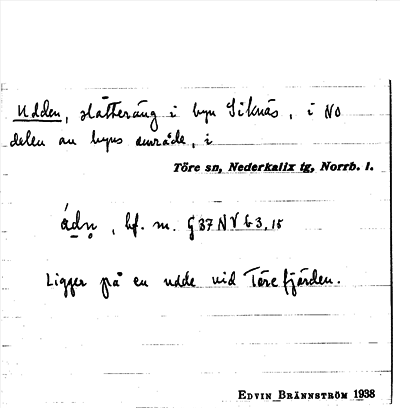 Udden, slåtteräng i byn Siknäs, i NO
delen av byns område, i
Töre sn, Nederkalix tg, Norrb. l.
ádn̥, bf. m. G 87 N V b 3, 15
Ligger på en udde vid Törefjärden.
EDVIN BRÄNNSTRÖM 1938